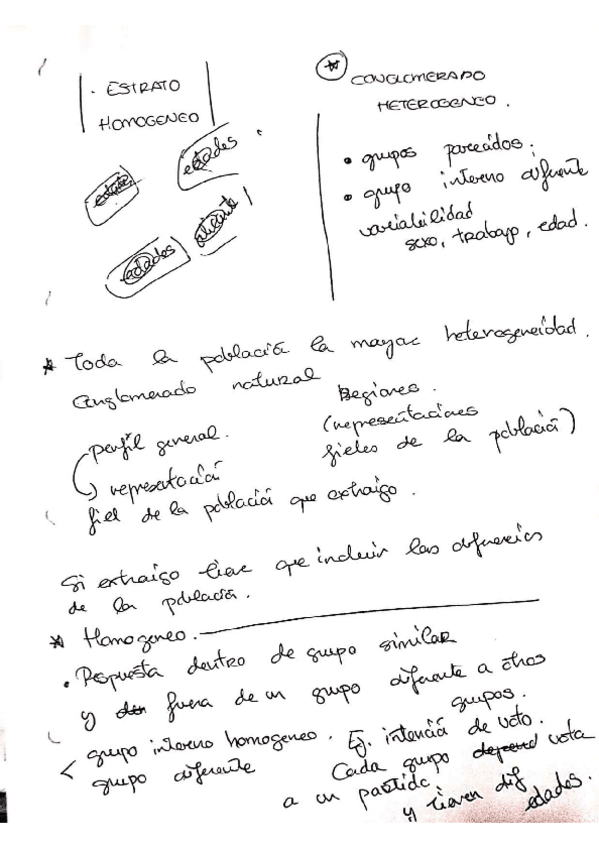 . ESTRATO
HOMOGENEO
edades
edades
edades
CONGLOMERADO
HETEROGENEO.
• grupos parecidos.
• grupo interno diferente
variabilidad
sexo, trabajo, edad.
* Toda la población la mayor heterogeneidad.
Conglomerado natural
perfil general.
↳ representación
fiel de la población que extraigo.
Regiones.
(representaciones
fieles de la población)
Si extraigo tiene que incluir las diferencias
de la población.
* Homogeneo.
• Respuesta dentro de grupo similar
y fuera de un grupo diferente a otros
grupos.
< grupo interno homogeneo. Ej. intención de voto.
grupo diferente
Cada grupo depend vota
a un partido.
y tienen dif
edades.